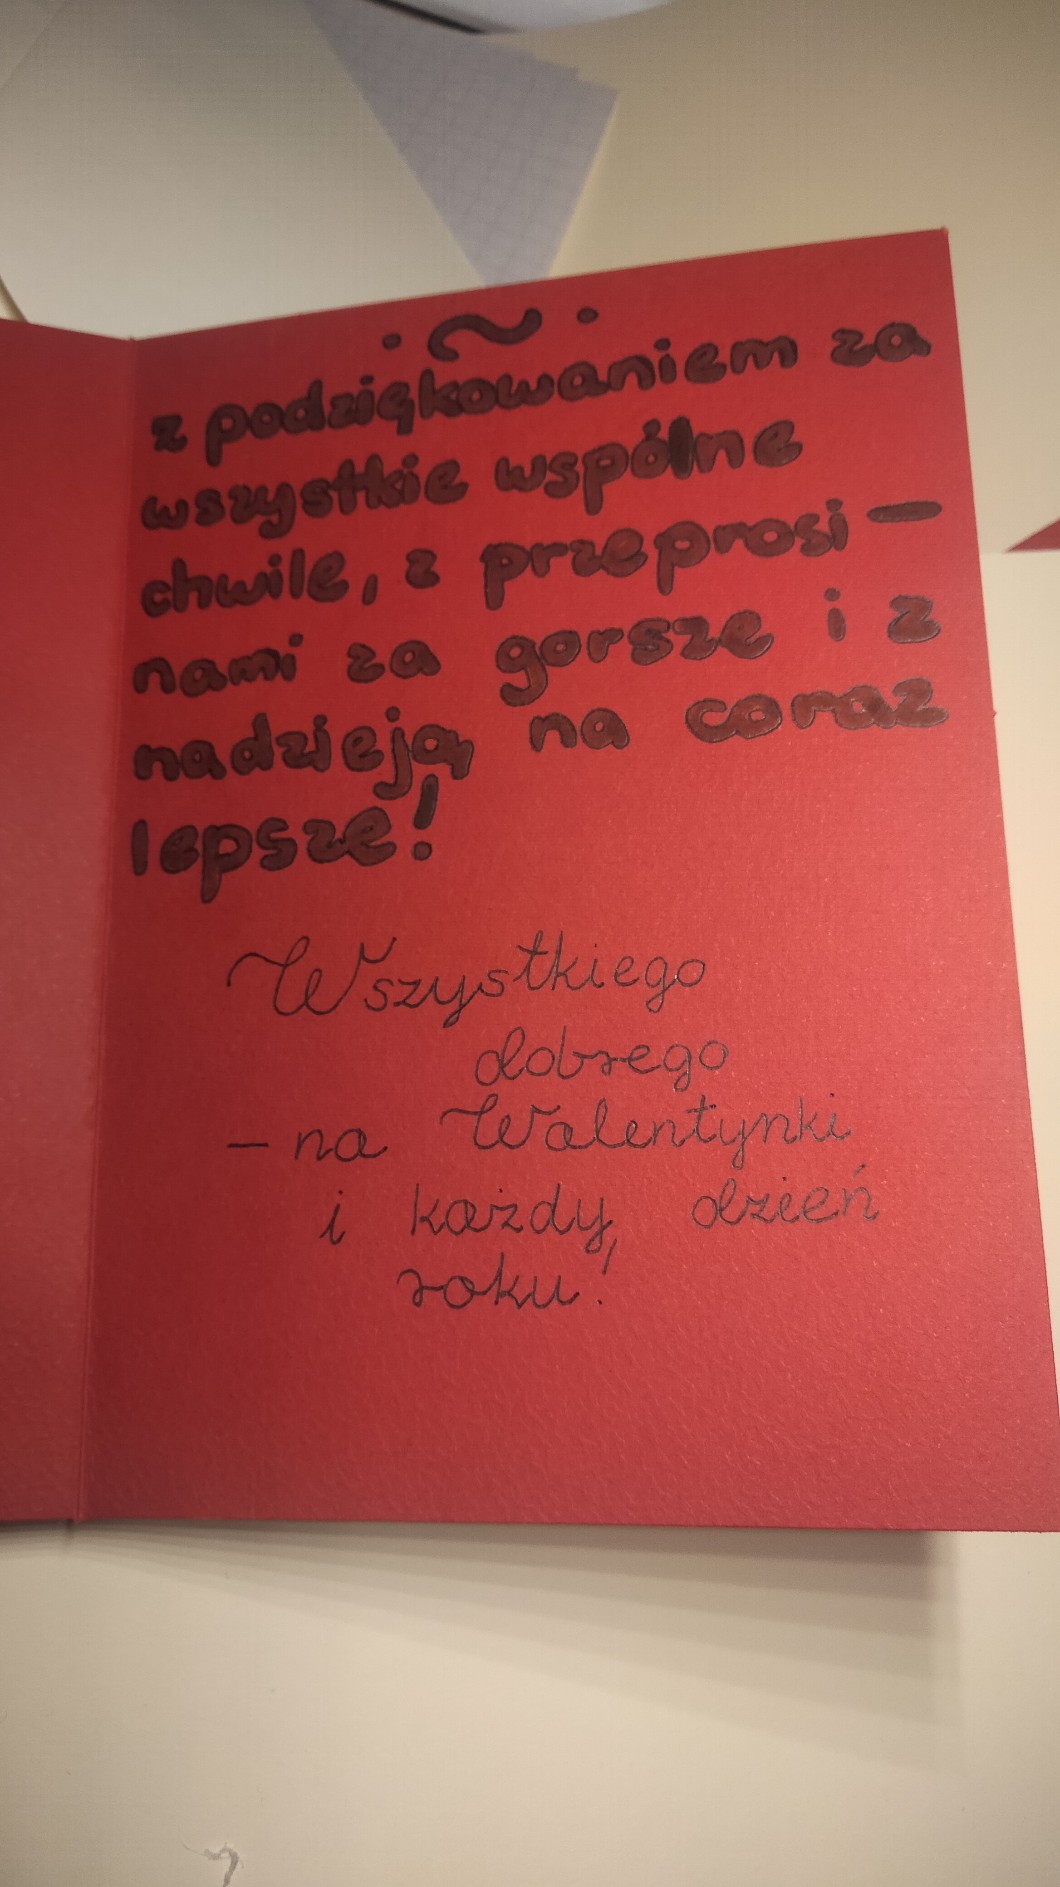 . ~ .
z podziękowaniem za
wszystkie wspólne
chwile, z przeprosi-
nami za gorsze i z
nadzieją na coraz
lepsze!
Wszystkiego
dobrego
- na Walentynki
i każdy dzień
roku!